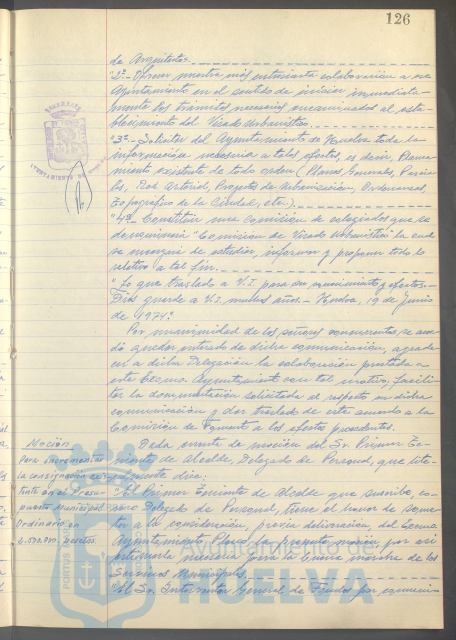 126
de Arquitectos.
"2º.- Ofrecer nuestra más entusiasta colaboración a ese
Ayuntamiento en el sentido de iniciar inmediata-
mente los trámites necesarios encaminados al esta-
blecimiento del Visado Urbanístico.
"3º.- Solicitar del Ayuntamiento de Huelva toda la
información necesaria a tales efectos, es decir, Planea-
miento existente de todo orden (Planes Generales, Parcia-
les, Red Arterial, Proyectos de Urbanización, Ordenanzas,
Topográfico de la Ciudad, etc.).
"4º.- Constituir una Comisión de colegiados que se
denominará "Comisión de Visado Urbanístico" la cual
se encargará de estudiar, informar y proponer todo lo
relativo a tal fin.
"Lo que traslado a V.I. para su conocimiento y efectos.-
Dios guarde a V.I. muchos años.- Huelva, 19 de Junio
de 1974".
Por unanimidad de los señores concurrentes se acor-
dó quedar enterado de dicha comunicación, agrade-
cer a dicha Delegación la colaboración prestada a
este Excmo. Ayuntamiento con tal motivo, facili-
tar la documentación solicitada al respecto en dicha
comunicación y dar traslado de este acuerdo a la
Comisión de Fomento a los efectos procedentes.
Moción
para incrementar
la consignación
en el Presu-
puesto Municipal
Ordinario en
pesetas.
Dada cuenta de moción del Sr. Primer Te-
niente de Alcalde, Delegado de Personal, que lite-
ralmente dice:
"El Primer Teniente de Alcalde que suscribe, co-
mo Delegado de Personal, tiene el honor de some-
ter a la consideración, previa deliberación, del Excmo.
Ayuntamiento Pleno la presente moción por así
estimarla para la buena marcha de los
Servicios Municipales.
"El Sr. Interventor General de Fondos por
Ayuntamiento de
HUELVA